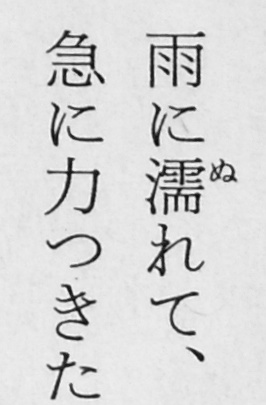 雨に濡れて、
急に力つきた